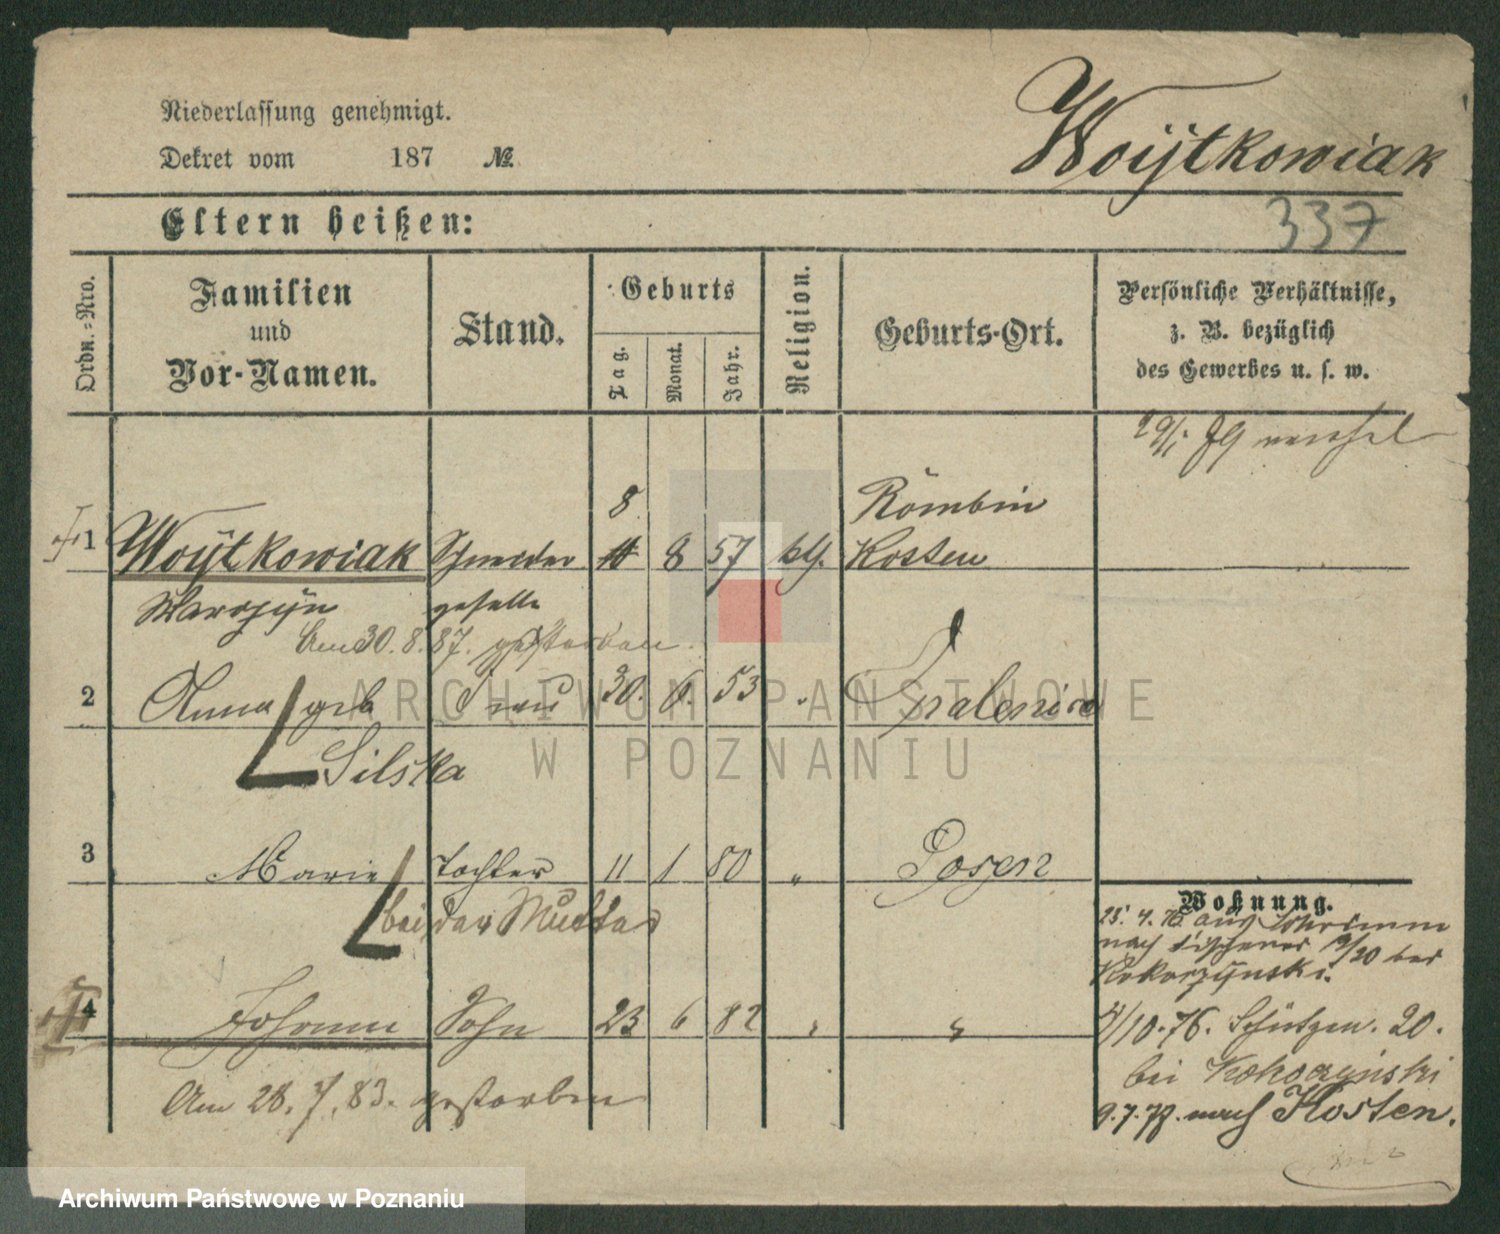 Niederlassung genehmigt.
Dekret vom 187 №
Woÿtkowiak
337
Eltern heißen:
Ordn.-Nro.
Familien und Vor-Namen.
Stand.
Geburts
Tag.
Monat.
Jahr.
Religion.
Geburts-Ort.
Persönliche Verhältnisse,
z. B. bezüglich
des Gewerbes u. s. w.
8 Rombin
1 Woÿtkowiak Schneider 11 8 57 kth. Kosten
Wawrzÿn geselle
Am 30.8.87. gestorben.
2 Anna geb Frau 30. 6. 53 Opalenica
Silska
3 Marie Tochter 11 1 80 " Posen
bei der Mutter
4 Johann Sohn 23 6 82 " "
Am 28.7.83. gestorben
Wohnung.
25.4.76 aus Schrimm
nach Fischerei 19/20 bei
Kokorzÿnski.
/10.76. Schützen. 20.
bei Kokorzÿnski
9.7.78. nach Kosten.
ARCHIWUM PAŃSTWOWE
W POZNANIU
Archiwum Państwowe w Poznaniu